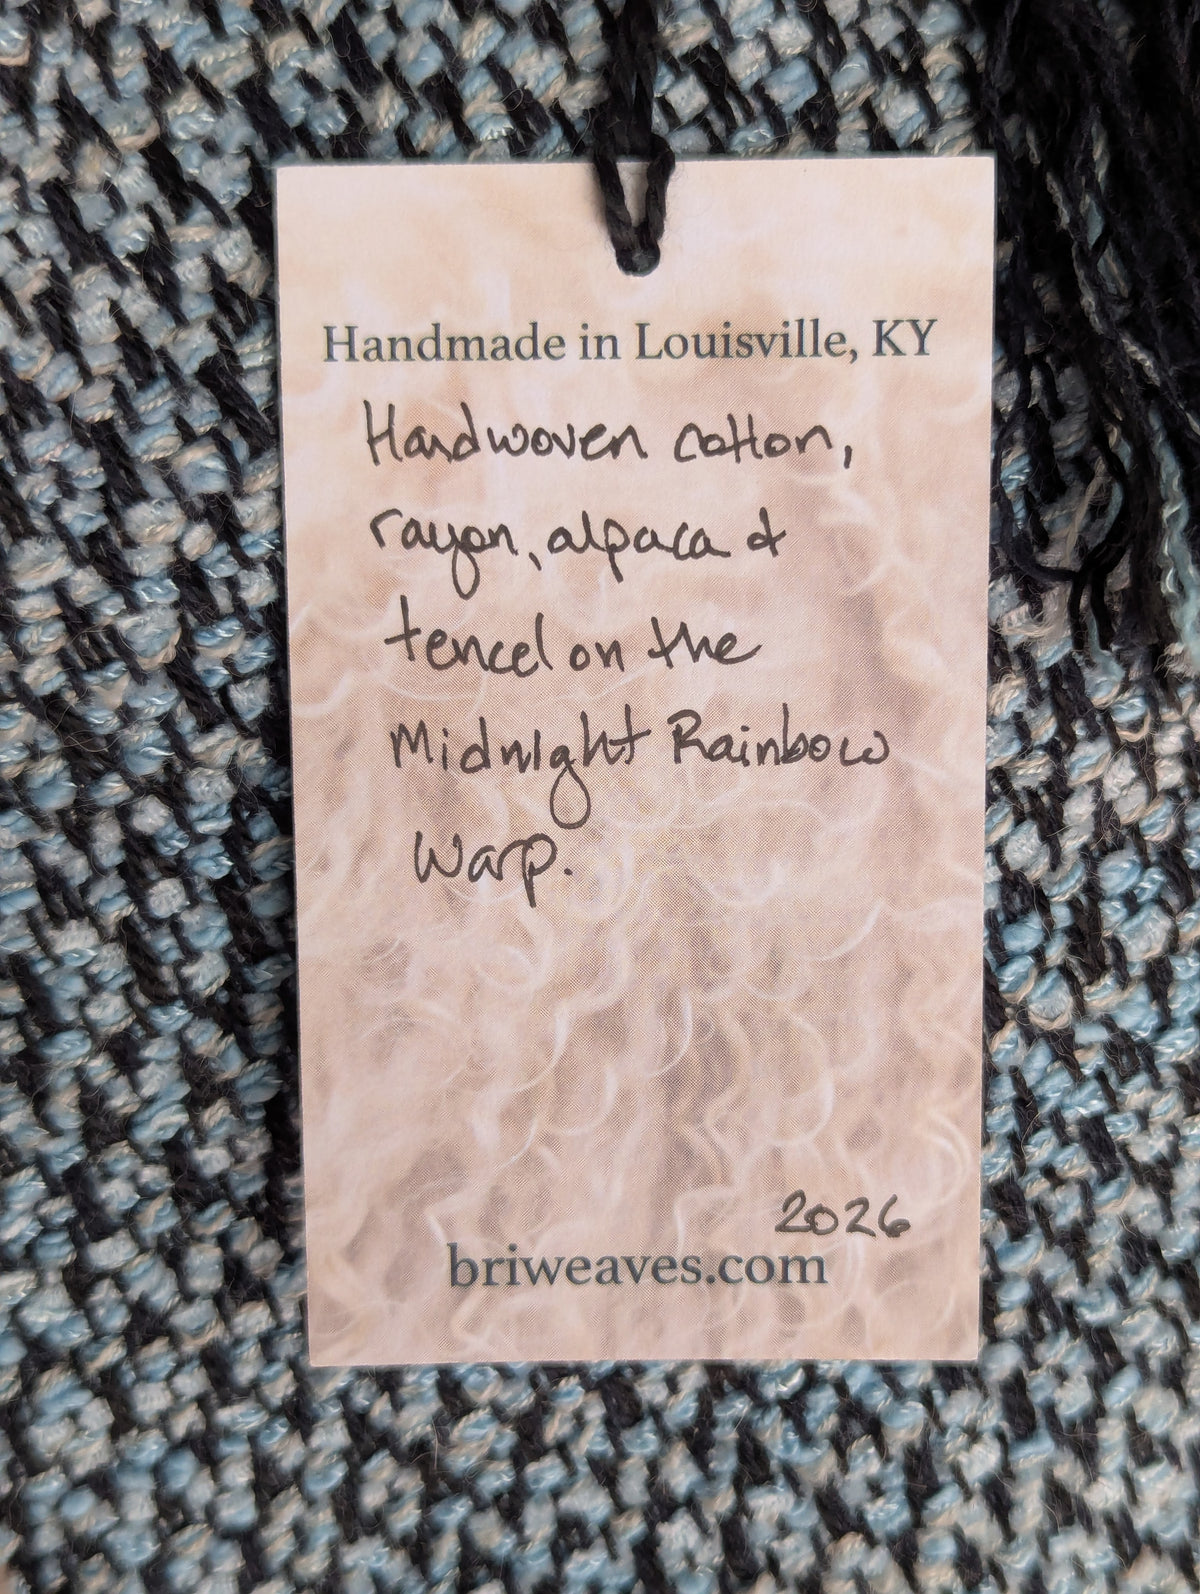 Handmade in Louisville, KY
Handwoven cotton,
rayon, alpaca &
tencel on the
Midnight Rainbow
Warp.
2026
briweaves.com